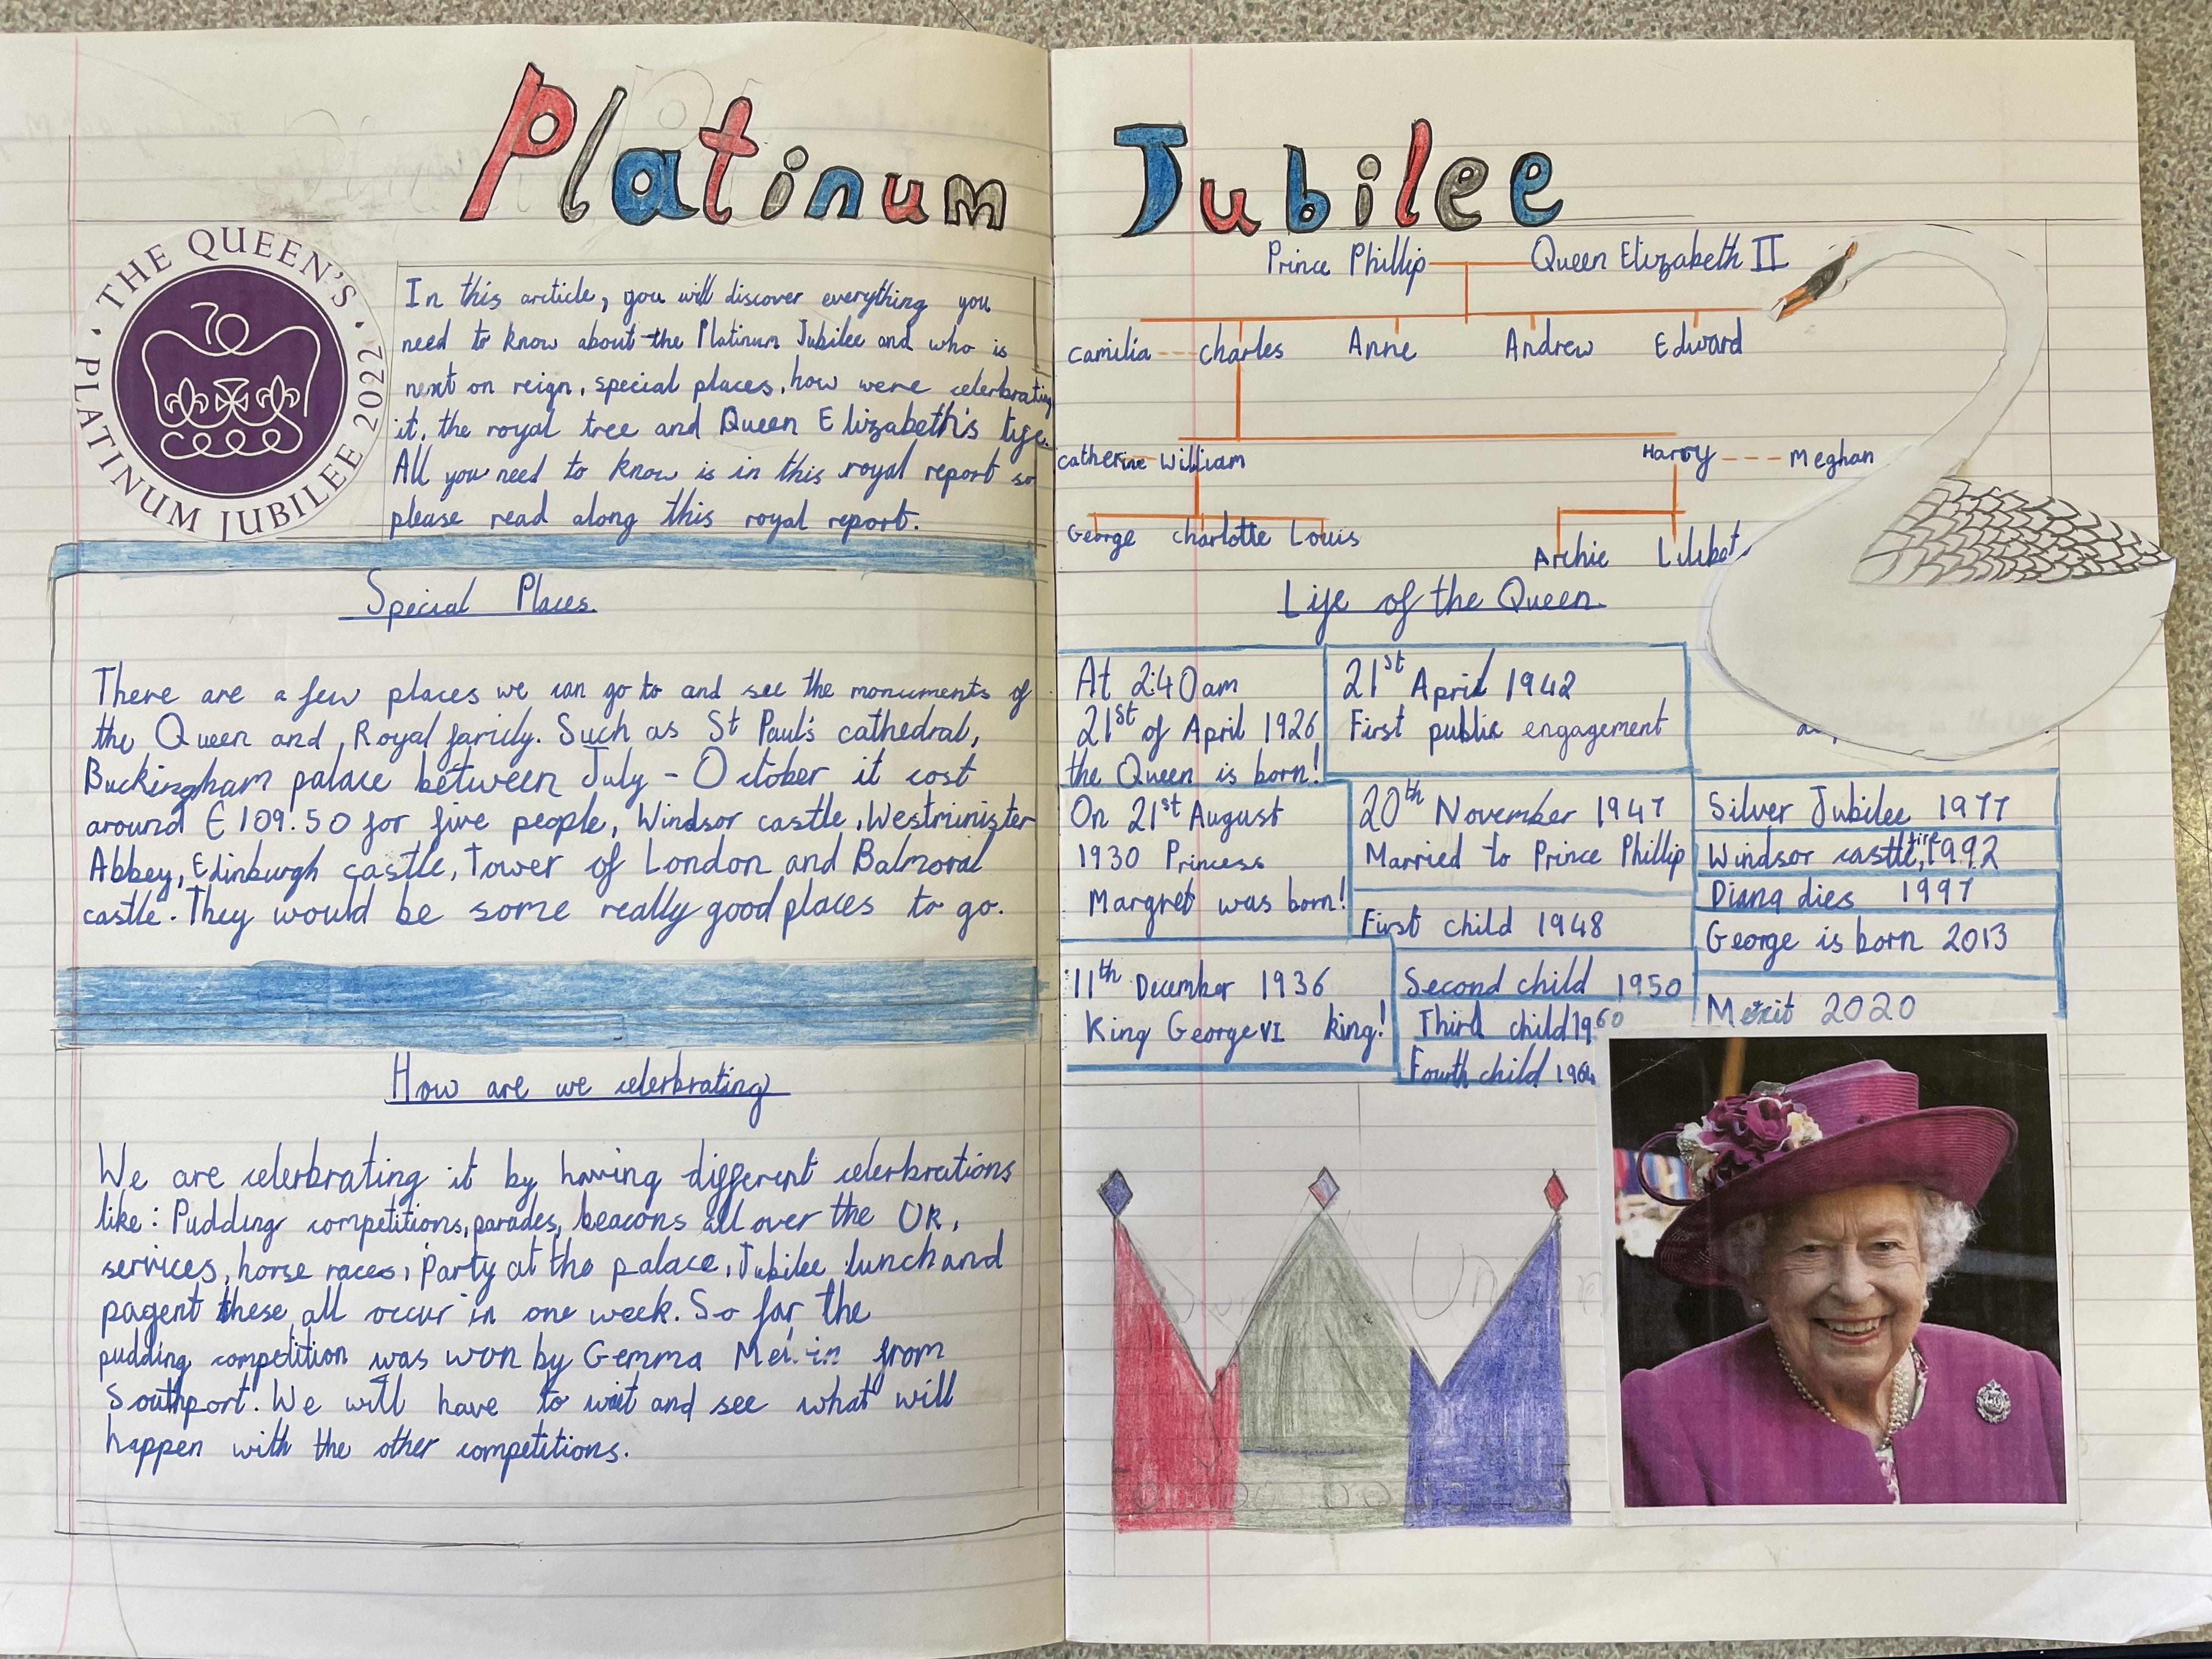 Platinum Jubilee
THE QUEEN'S
PLATINUM JUBILEE 2022
70
In this article, you will discover everything you
need to know about the Platinum Jubilee and who is
next on reign, special places, how were celerbrating
it, the royal tree and Queen Elizabeth's life.
All you need to know is in this royal report so
please read along this royal report.
Special Places.
There are a few places we can go to and see the monuments of
the Queen and Royal family. Such as St Paul's cathedral,
Buckingham palace between July - October it cost
around £109.50 for five people, Windsor castle, Westminister
Abbey, Edinburgh castle, Tower of London and Balmoral
castle. They would be some really good places to go.
How are we celerbrating
We are celerbrating it by having different celerbrations
like: Pudding competitions, parades, beacons all over the UK,
services, horse races, Party at the palace, Jubilee lunch and
pagent these all occur in one week. So far the
pudding competition was won by Gemma from
Southport. We will have to wait and see what will
happen with the other competitions.
Prince Phillip Queen Elizabeth II
Camilia Charles Anne Andrew Edward
Catherine William Harry Meghan
George Charlotte Louis
Archie Lilibet
Life of the Queen.
At 2:40am
21st of April 1926
the Queen is born!
On 21st August
1930 Princess
Margret was born!
11th December 1936
King George VI king!
21st April 1942
First public engagement
20th November 1947
Married to Prince Phillip
First child 1948
Second child 1950
Third child 1960
Fourth child 1964
Silver Jubilee 1977
Windsor castle fire 1992
Diana dies 1997
George is born 2013
2020